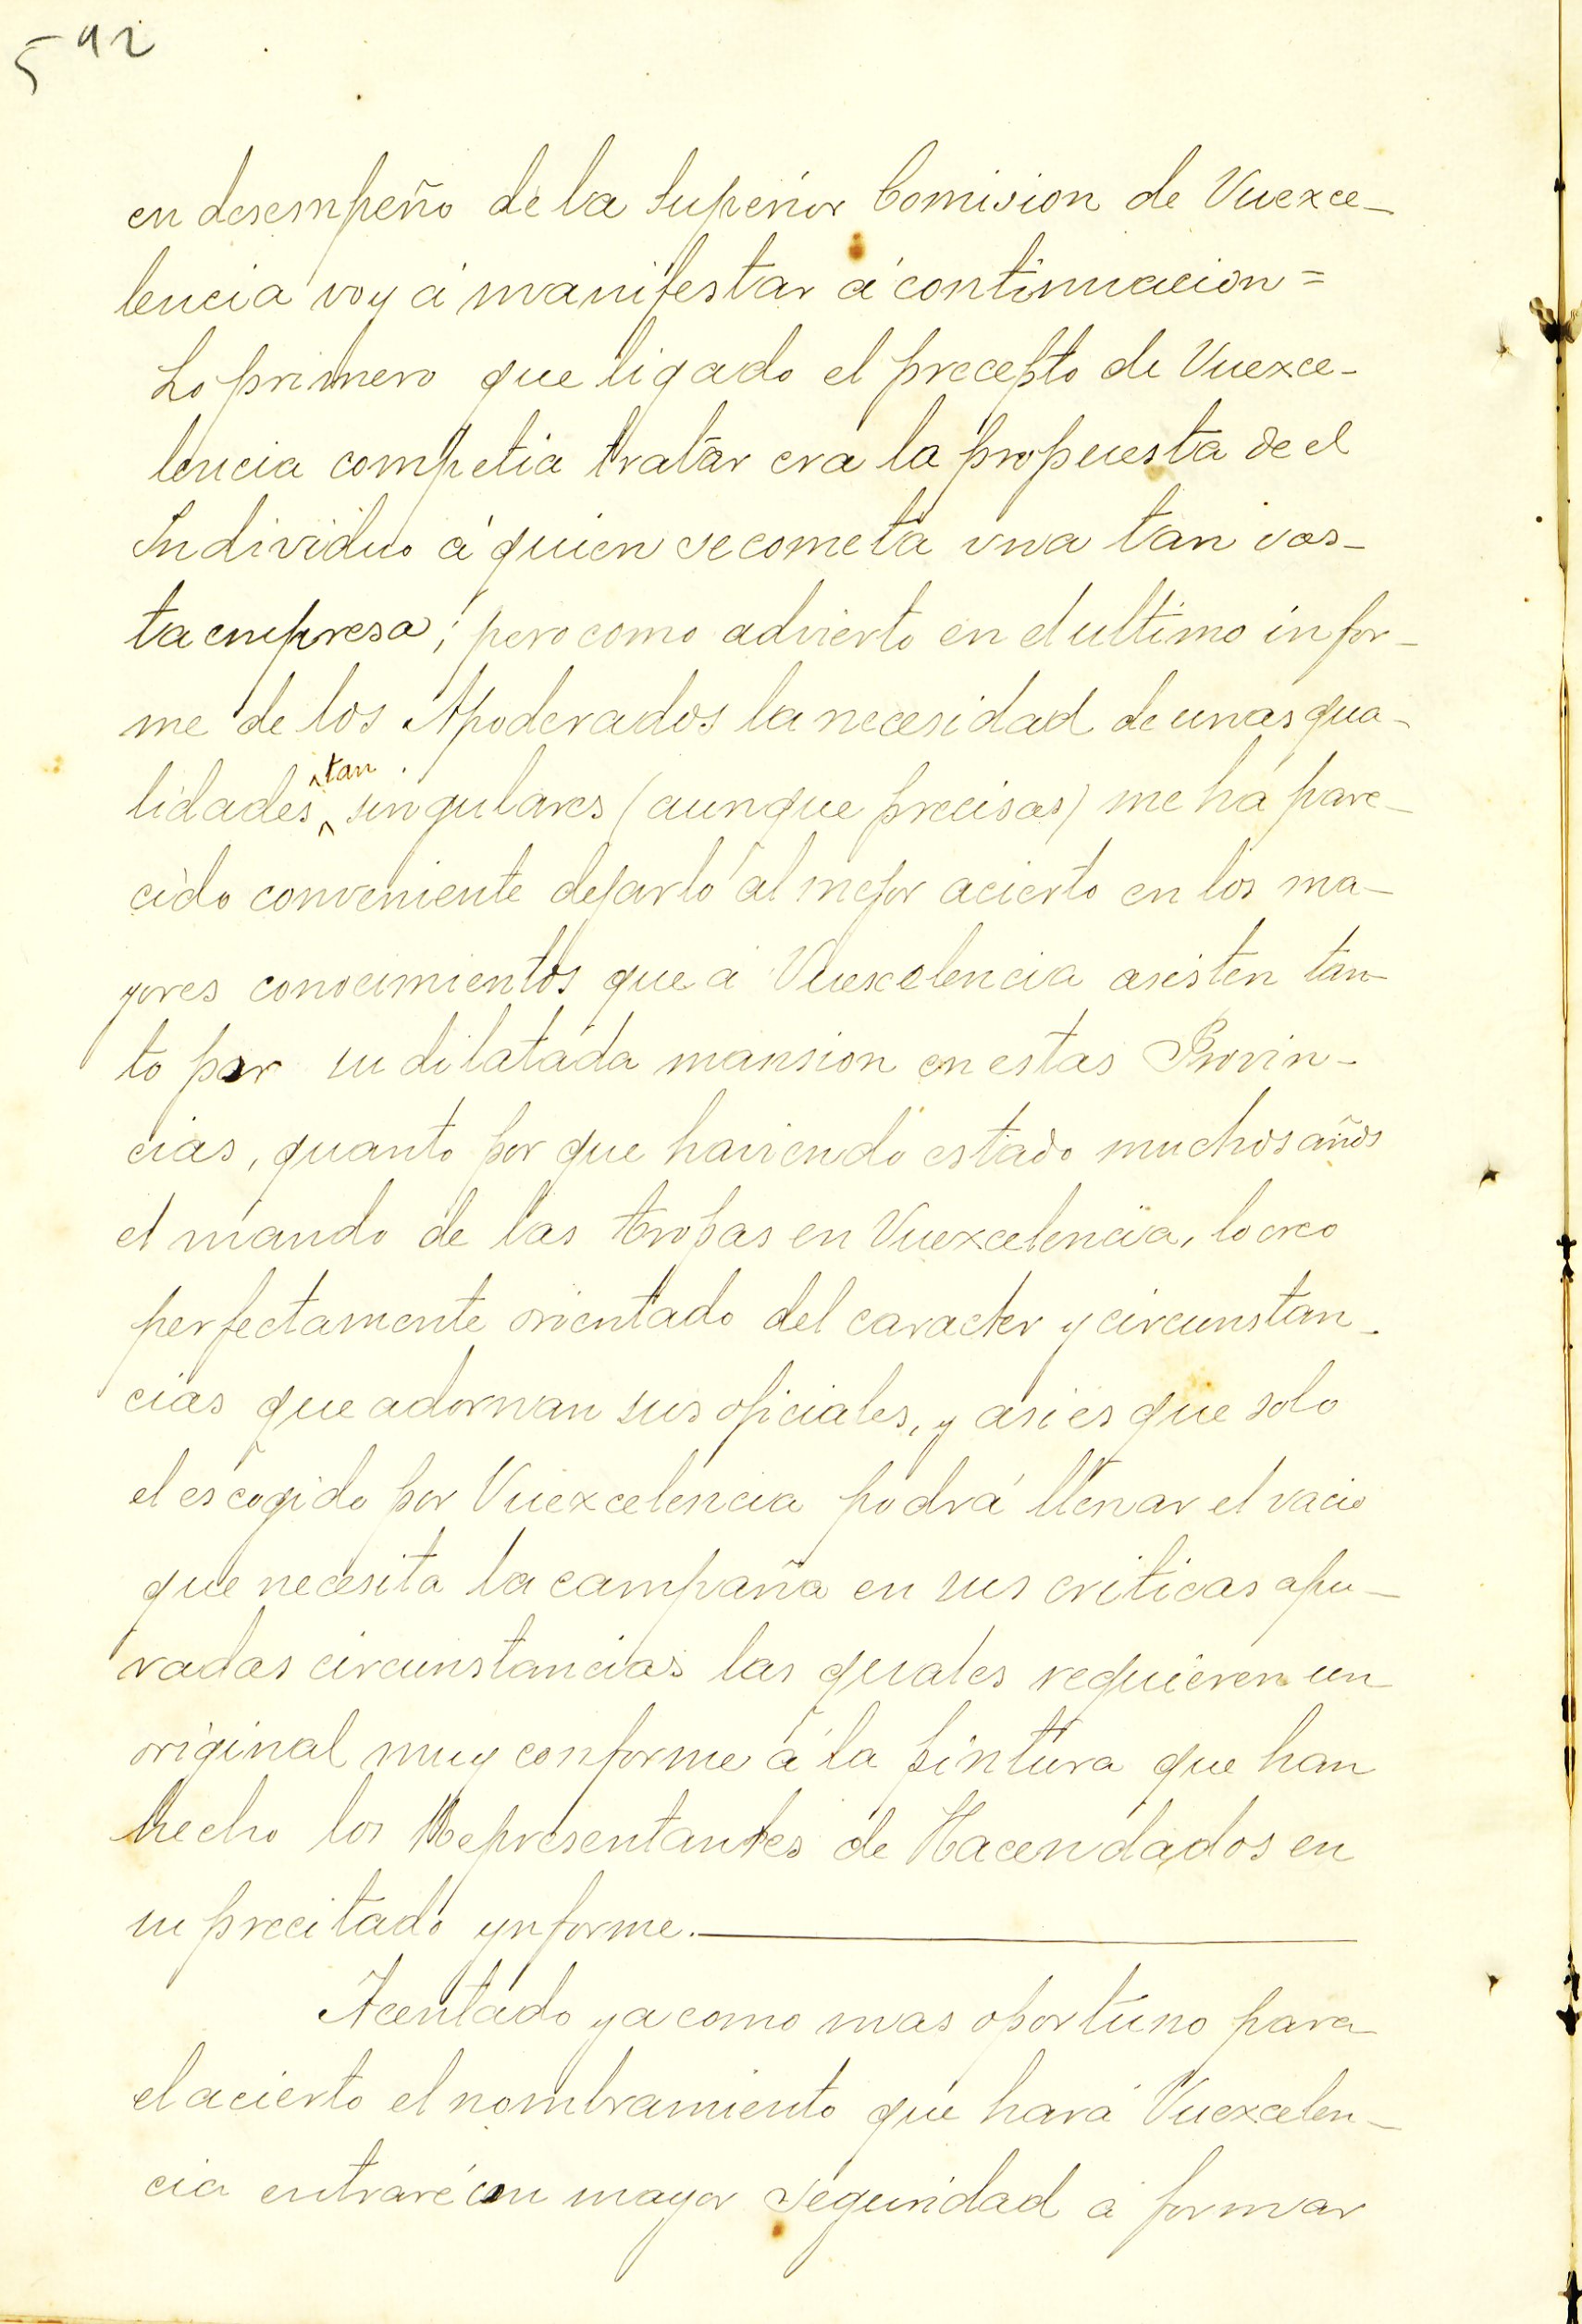 592
en desempeño de la Superior Comision de Vuexce-
lencia voy á manifestar á continuacion=
Lo primero que ligado el precepto de Vuexce-
lencia competia tratar era la propuesta de el
Individuo á quien se cometa una tan vas-
ta empresa; pero como advierto en el ultimo infor-
me de los Apoderados la necesidad de unas qua-
lidades tan singulares (aunque precisas) me há pare-
cido conveniente dejarlo al mejor acierto en los ma-
yores conocimientos que á Vuexcelencia asisten tan-
to por su dilatada mansion en estas Provin-
cias, quanto por que haviendo estado muchos años
el mando de las tropas en Vuexcelencia, lo creo
perfectamente orientado del caracter y circunstan-
cias que adornan sus oficiales, y asi es que solo
el escogido por Vuexcelencia podrá llenar el vacio
que necesita la campaña en sus criticas apu-
radas circunstancias las quales requieren un
original muy conforme á la pintura que han
hecho los Representantes de Hacendados en
su precitado ynforme.
Acentado ya como mas oportuno para
el acierto el nombramiento que hará Vuexcelen-
cia entraré con mayor seguridad á formar